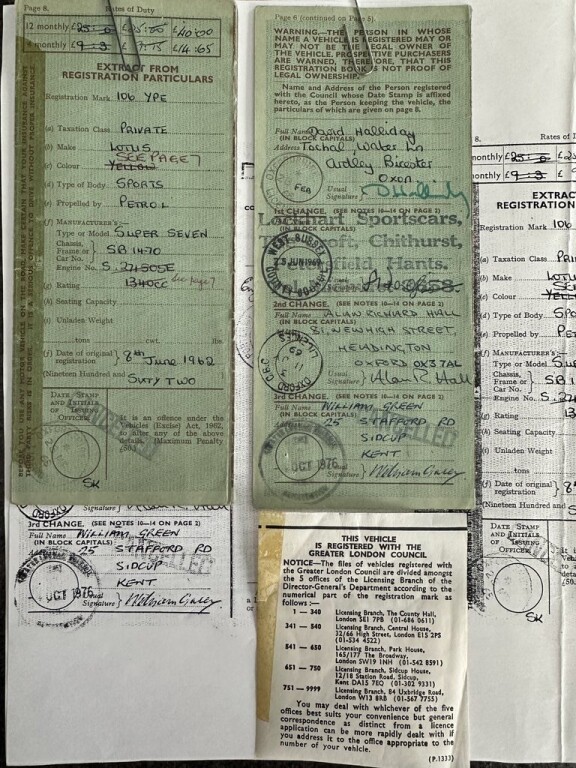 Page 8. Rates of Duty
12 monthly £25 : 0 £25:00 £40:00
4 monthly £9 : 3 £14:65
EXTRACT FROM
REGISTRATION PARTICULARS
Registration Mark 106 YPE
(a) Taxation Class PRIVATE
(b) Make LOTUS
SEE PAGE 7
(c) Colour YELLOW
(d) Type of Body SPORTS
(e) Propelled by PETROL
(f) MANUFACTURER'S:—
Type or Model SUPER SEVEN
Chassis,
Frame or SB 1470
Car No.
Engine No. S.
(g) Rating 1340CC See page 7
(h) Seating Capacity
(i) Unladen Weight
tons cwt. lbs.
(j) Date of original registration 8th June 1962
(Nineteen Hundred and SIXTY TWO
DATE STAMP
AND INITIALS
OF ISSUING
OFFICER
It is an offence under the
Vehicles (Excise) Act, 1962,
to alter any of the above
details. (Maximum Penalty
£50.)
SK
Page 6 (continued on Page 5).
WARNING.—THE PERSON IN WHOSE
NAME A VEHICLE IS REGISTERED MAY OR
MAY NOT BE THE LEGAL OWNER OF
THE VEHICLE. PROSPECTIVE PURCHASERS
ARE WARNED, THEREFORE, THAT THIS
REGISTRATION BOOK IS NOT PROOF OF
LEGAL OWNERSHIP.
Name and Address of the Person registered
with the Council whose Date Stamp is affixed
hereto, as the Person keeping the vehicle, the
particulars of which are given on page 8.
Full Name David Halliday
(IN BLOCK CAPITALS)
Address Tochal, Water Ln
Ardley Bicester
Oxon.
Usual Signature D Halliday
FEB
1st CHANGE. (SEE NOTES 10—14 ON PAGE 2)
Lockhart Sportscars,
Chithurst,
Hants.
WEST SUSSEX
JUN 1969
2nd CHANGE. (SEE NOTES 10—14 ON PAGE 2)
Full Name ALAN RICHARD HALL
81, NEWHIGH STREET,
HEADINGTON
OXFORD OX3 7AL
Usual Signature Alan R Hall
OXFORD C.B.C.
3rd CHANGE. (SEE NOTES 10—14 ON PAGE 2)
Full Name WILLIAM GREEN
(IN BLOCK CAPITALS)
25 STAFFORD RD
SIDCUP
KENT
Usual Signature
OCT 1976
CANCELLED
Signature
3rd CHANGE. (SEE NOTES 10—14 ON PAGE 2)
Full Name WILLIAM GREEN
(IN BLOCK CAPITALS)
25 STAFFORD RD
SIDCUP
KENT
Usual Signature
OCT 1976
THIS VEHICLE
IS REGISTERED WITH THE
GREATER LONDON COUNCIL
NOTICE—The files of vehicles registered
with the Greater London Council are divided amongst
the 5 offices of the Licensing Branch of the
Director-General's Department according to the
numerical part of the registration mark as
follows :—
1 — 340 Licensing Branch, The County Hall,
London SE1 7PB (01-686 0611)
341 — 540 Licensing Branch, Central House,
32/66 High Street, London E15 2PS
(01-534 4522)
541 — 650 Licensing Branch, Park House,
165/177 The Broadway,
London SW19 1NH (01-542 8591)
651 — 750 Licensing Branch, Sidcup House,
12/18 Station Road, Sidcup,
Kent DA15 7EQ (01-302 9331)
751 — 9999 Licensing Branch, 84 Uxbridge Road,
London W13 8RB (01-567 7755)
You may deal with whichever of the five
offices best suits your convenience but general
correspondence as distinct from a licence
application can be more rapidly dealt with if
you address it to the office appropriate to the
number of your vehicle.
(P.1333)
8. Rates of D
monthly £25 : 0
monthly £9 : 3
EXTRAC
REGISTRATION
Registration Mark 106
(a) Taxation Class PRI
(b) Make LOTU
SEE
(c) Colour YELL
(d) Type of Body SPO
(e) Propelled by PE
(f) MANUFACTURER'S:—
Type or Model SU
Chassis,
Frame or SB 1
Car No.
Engine No. S.
(g) Rating 13
(h) Seating Capacity
(i) Unladen Weight
tons
(j) Date of original registration 8
(Nineteen Hundred and S
DATE STAMP
AND INITIALS
OF ISSUING
OFFICER
It is
Vehic
to alt
detail
£50.)
SK